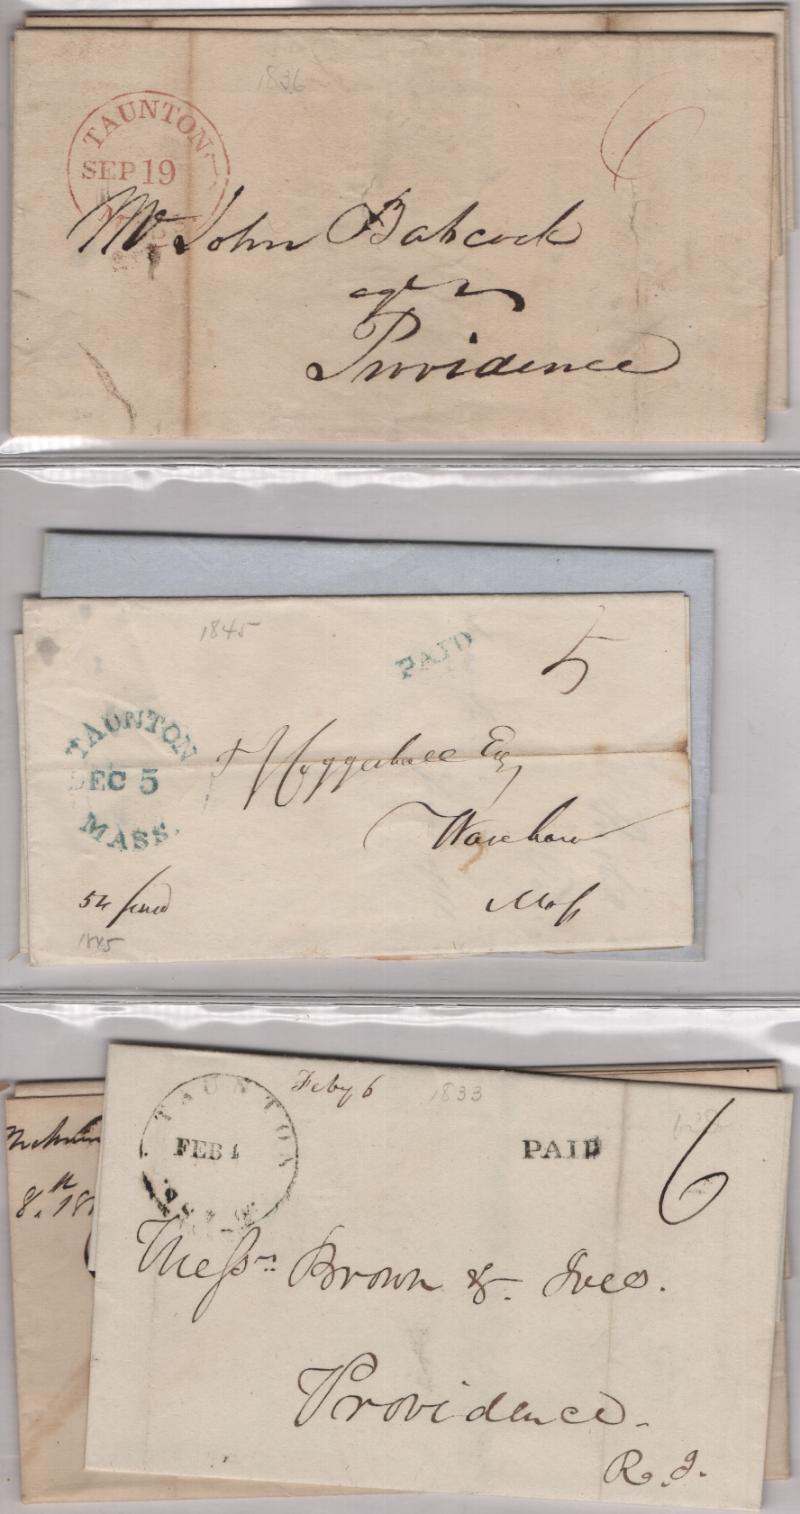 1836
TAUNTON
SEP 19
6
Mr. John Babcock
Providence
1845
PAID
5
TAUNTON
DEC 5
MASS.
Esq
Wareham
Mass
54
1845
Feby 6
1833
TAUNTON
FEB
PAID
6
8.th 18
Messrs Brown & Ives.
Providence.
R. I.